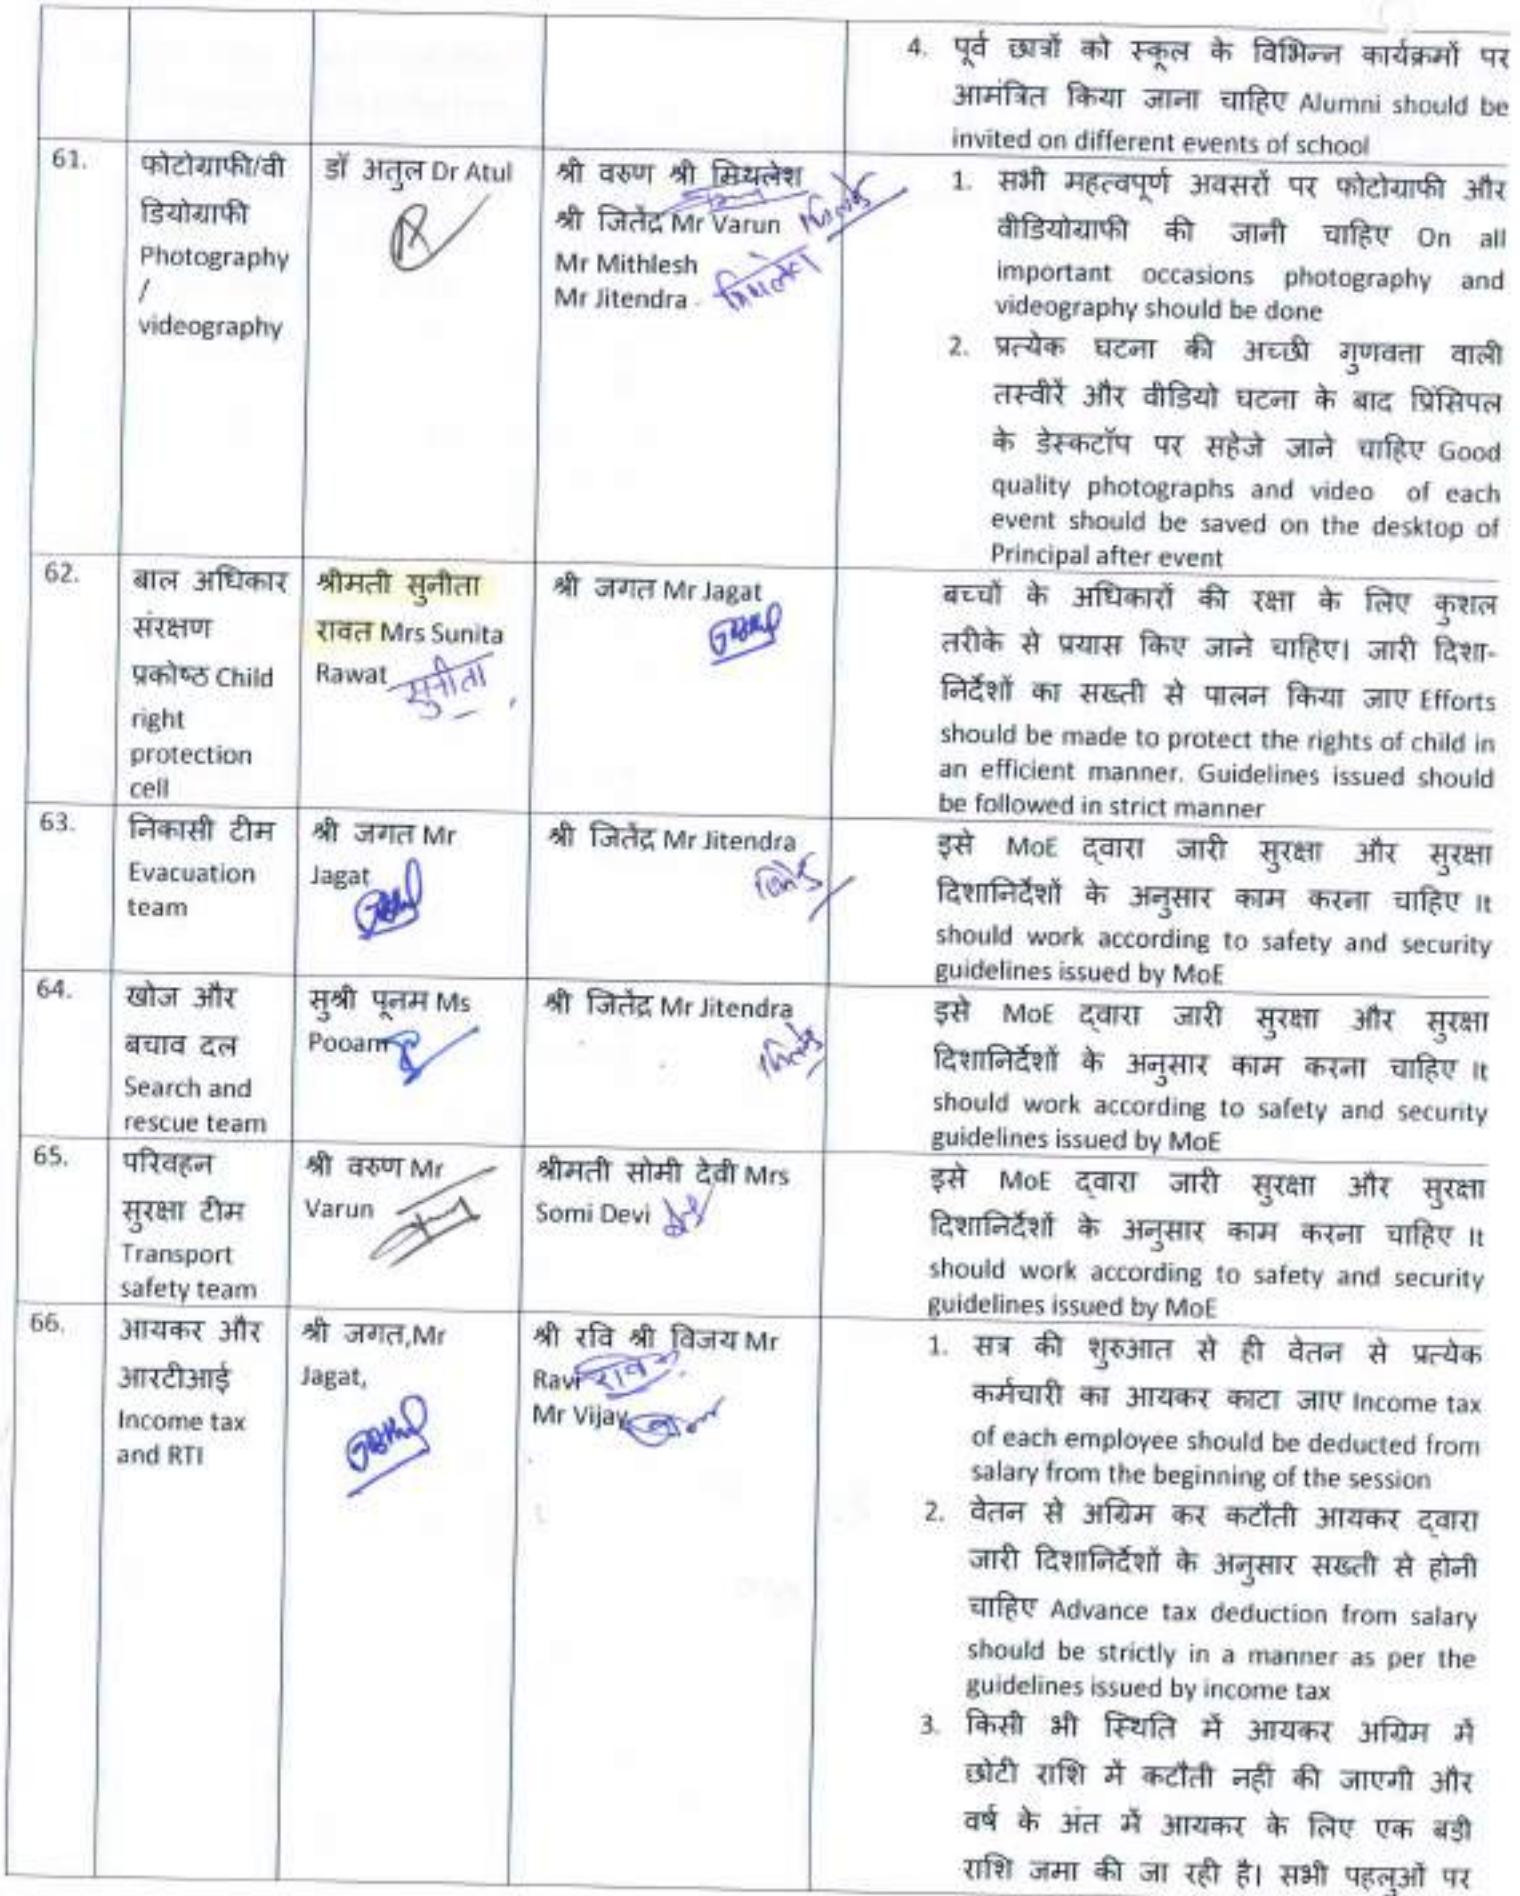 4. पूर्व छात्रों को स्कूल के विभिन्न कार्यक्रमों पर
आमंत्रित किया जाना चाहिए Alumni should be
invited on different events of school
61.
फोटोग्राफी/वी
डियोग्राफी
Photography
/
videography
डॉ अतुल Dr Atul
श्री वरुण श्री मिथलेश
श्री जितेंद्र Mr Varun
Mr Mithlesh
Mr Jitendra
मिथलेश
1. सभी महत्वपूर्ण अवसरों पर फोटोग्राफी और
वीडियोग्राफी की जानी चाहिए On all
important occasions photography and
videography should be done
2. प्रत्येक घटना की अच्छी गुणवत्ता वाली
तस्वीरें और वीडियो घटना के बाद प्रिंसिपल
के डेस्कटॉप पर सहेजे जाने चाहिए Good
quality photographs and video of each
event should be saved on the desktop of
Principal after event
62.
बाल अधिकार
संरक्षण
प्रकोष्ठ Child
right
protection
cell
श्रीमती सुनीता
रावत Mrs Sunita
Rawat
सुनीता
श्री जगत Mr Jagat
बच्चों के अधिकारों की रक्षा के लिए कुशल
तरीके से प्रयास किए जाने चाहिए। जारी दिशा-
निर्देशों का सख्ती से पालन किया जाए Efforts
should be made to protect the rights of child in
an efficient manner. Guidelines issued should
be followed in strict manner
63.
निकासी टीम
Evacuation
team
श्री जगत Mr
Jagat
श्री जितेंद्र Mr Jitendra
इसे MoE द्वारा जारी सुरक्षा और सुरक्षा
दिशानिर्देशों के अनुसार काम करना चाहिए It
should work according to safety and security
guidelines issued by MoE
64.
खोज और
बचाव दल
Search and
rescue team
सुश्री पूनम Ms
Pooam
श्री जितेंद्र Mr Jitendra
इसे MoE द्वारा जारी सुरक्षा और सुरक्षा
दिशानिर्देशों के अनुसार काम करना चाहिए It
should work according to safety and security
guidelines issued by MoE
65.
परिवहन
सुरक्षा टीम
Transport
safety team
श्री वरुण Mr
Varun
श्रीमती सोमी देवी Mrs
Somi Devi
इसे MoE द्वारा जारी सुरक्षा और सुरक्षा
दिशानिर्देशों के अनुसार काम करना चाहिए It
should work according to safety and security
guidelines issued by MoE
66.
आयकर और
आरटीआई
Income tax
and RTI
श्री जगत,Mr
Jagat,
श्री रवि श्री विजय Mr
Ravi
Mr Vijay
1. सत्र की शुरुआत से ही वेतन से प्रत्येक
कर्मचारी का आयकर काटा जाए Income tax
of each employee should be deducted from
salary from the beginning of the session
2. वेतन से अग्रिम कर कटौती आयकर द्वारा
जारी दिशानिर्देशों के अनुसार सख्ती से होनी
चाहिए Advance tax deduction from salary
should be strictly in a manner as per the
guidelines issued by income tax
3. किसी भी स्थिति में आयकर अग्रिम में
छोटी राशि में कटौती नहीं की जाएगी और
वर्ष के अंत में आयकर के लिए एक बड़ी
राशि जमा की जा रही है। सभी पहलुओं पर